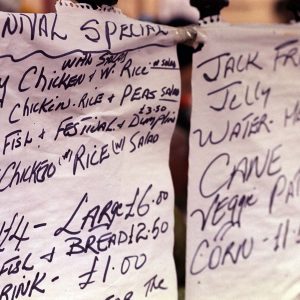 NIVAL SPECIAL
WITH SALAD
Y CHICKEN & W. RICE
CHICKEN. RICE & PEAS SALAD
£3.50
FISH & FESTIVAL & DUMPLING
CHICKEN W/ RICE W/ SALAD
LARGE £6.00
FISH & BREAD £2.50
RINK - £1.00
FOR THE
JACK FR
JELLY
WATER-M
CANE
VEGGIE PA
CORN -